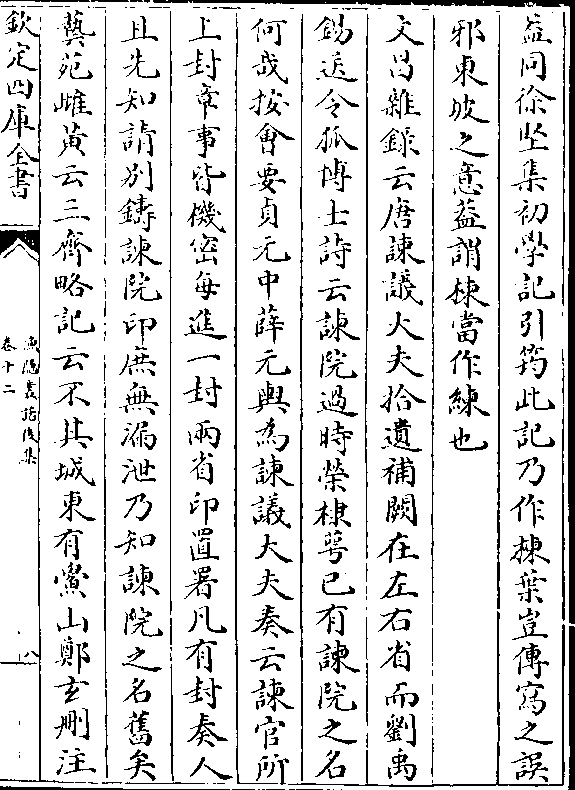 益同徐堅集初學記引筠此記乃作棟葉豈傳寫之誤
邪東坡之意葢謂棟當作練也
文昌雜錄云唐諫議大夫拾遺補闕在左右省而劉禹
錫送令狐博士詩云諫院過時榮棣萼已有諫院之名
何哉按會要貞元中薛元輿為諫議大夫奏云諫官所
上封章事皆機密每進一封兩省印置署凡有封奏人
且先知請別鑄諫院印庶無漏泄乃知諫院之名舊矣
藝苑雌黃云三齊略記云不其城東有黌山鄭玄刪注
欽定四庫全書
漁隱叢話後集
卷十二
八